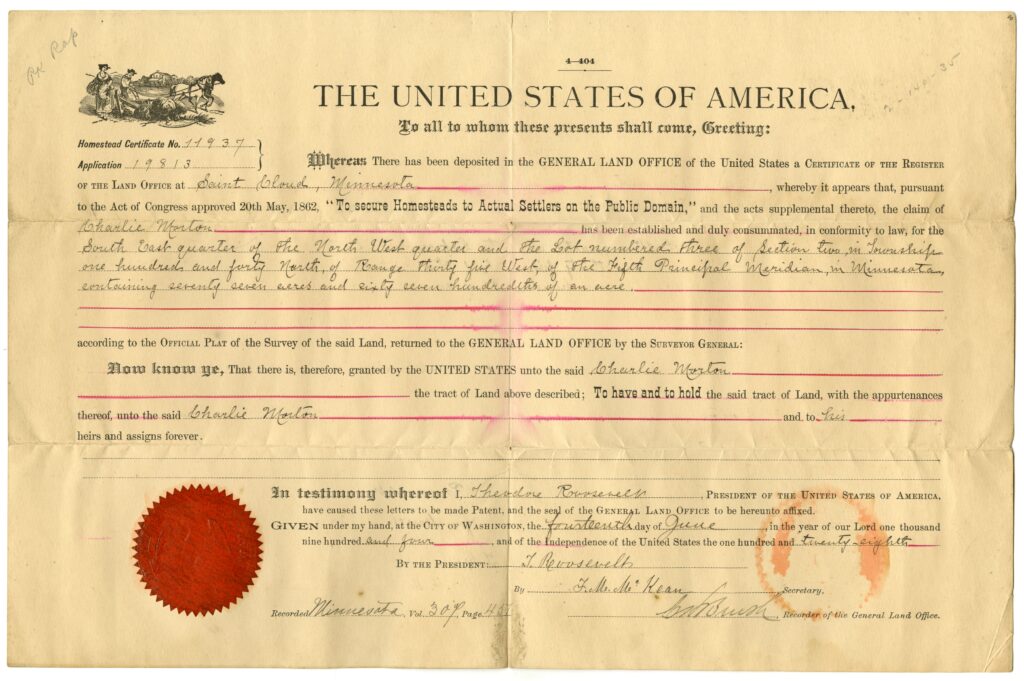 4—404
THE UNITED STATES OF AMERICA,
To all to whom these presents shall come, Greeting:
Homestead Certificate No. 11937
Application 19813
Whereas There has been deposited in the GENERAL LAND OFFICE of the United States a CERTIFICATE OF THE REGISTER
OF THE LAND OFFICE AT Saint Cloud, Minnesota, whereby it appears that, pursuant
to the Act of Congress approved 20th May, 1862, "To secure Homesteads to Actual Settlers on the Public Domain," and the acts supplemental thereto, the claim of
Charlie Morton has been established and duly consummated, in conformity to law, for the
South East quarter of the North West quarter and the Lot numbered three of Section two, in Township
one hundred and forty North, of Range thirty five West, of the Fifth Principal Meridian, in Minnesota,
containing seventy seven acres and sixty seven hundredths of an acre.
according to the OFFICIAL PLAT of the Survey of the said Land, returned to the GENERAL LAND OFFICE by the SURVEYOR GENERAL:
Now know ye, That there is, therefore, granted by the UNITED STATES unto the said Charlie Morton
the tract of Land above described; To have and to hold the said tract of Land, with the appurtenances
thereof, unto the said Charlie Morton and to his
heirs and assigns forever.
In testimony whereof I, Theodore Roosevelt, PRESIDENT OF THE UNITED STATES OF AMERICA,
have caused these letters to be made Patent, and the seal of the GENERAL LAND OFFICE to be hereunto affixed.
GIVEN under my hand, at the CITY OF WASHINGTON, the fourteenth day of June, in the year of our Lord one thousand
nine hundred and four, and of the Independence of the United States the one hundred and twenty-eighth
BY THE PRESIDENT: T. Roosevelt
By F. M. McKean, Secretary,
Recorded Minnesota Vol. 309, Page
Recorder of the General Land Office.